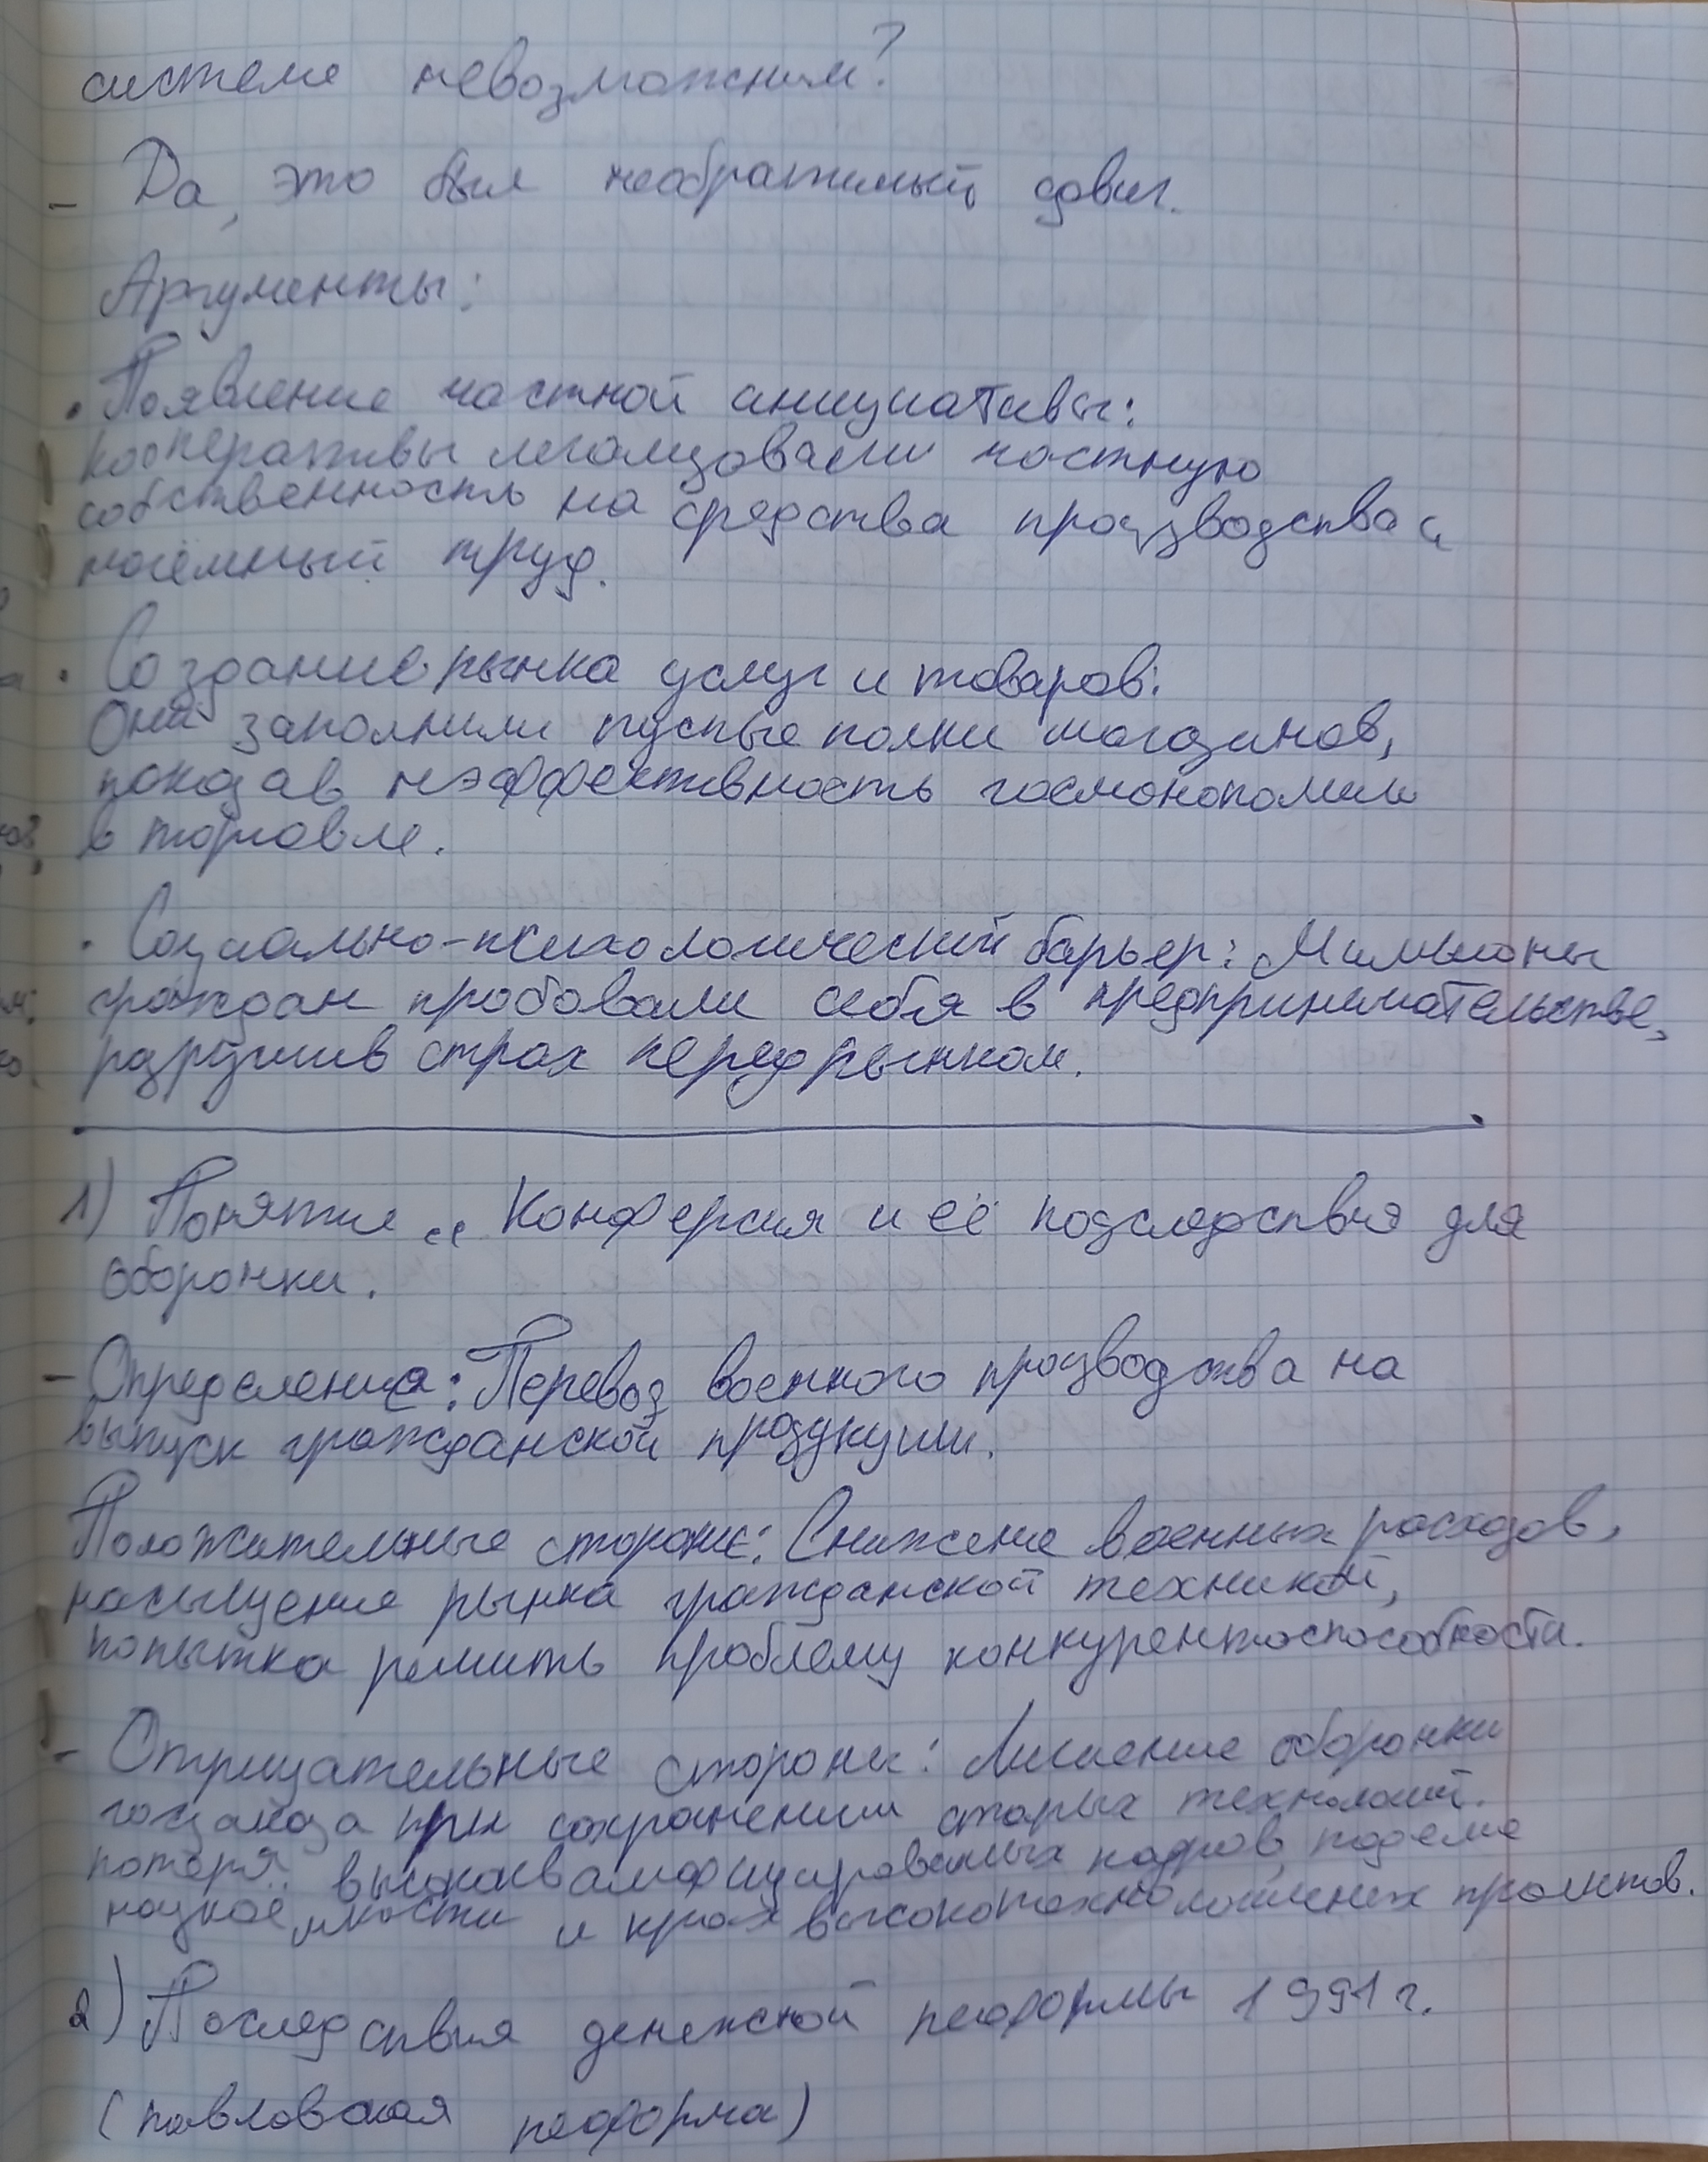 системе невозможным?
- Да, это был необратимый сдвиг.
Аргументы:
• Появление частной инициативы:
кооперативы легализовали частную
собственность на средства производства и
наёмный труд.
• Создание рынка услуг и товаров:
Они заполнили пустые полки магазинов,
показав неэффективность госмонополии
в торговле.
• Социально-психологический барьер: Миллионы
граждан пробовали себя в предпринимательстве,
разрушив страх перед рынком.
1) Понятие „Конферсия и её подследствия для
оборонки.
- Определение: Перевод военного производства на
выпуск гражданской продукции.
Положительные стороны: Снижение военных расходов,
насыщение рынка гражданской техникой,
попытка решить проблему конкурентоспособности.
- Отрицательные стороны: Лишение оборонки
госзаказа при сохранении старых технологий.
потеря высококвалифицированных кадров,
наукоёмкости и крах высокотехнологичных проектов.
2) Последствия денежной реформы 1991 г.
(павловская реформа)